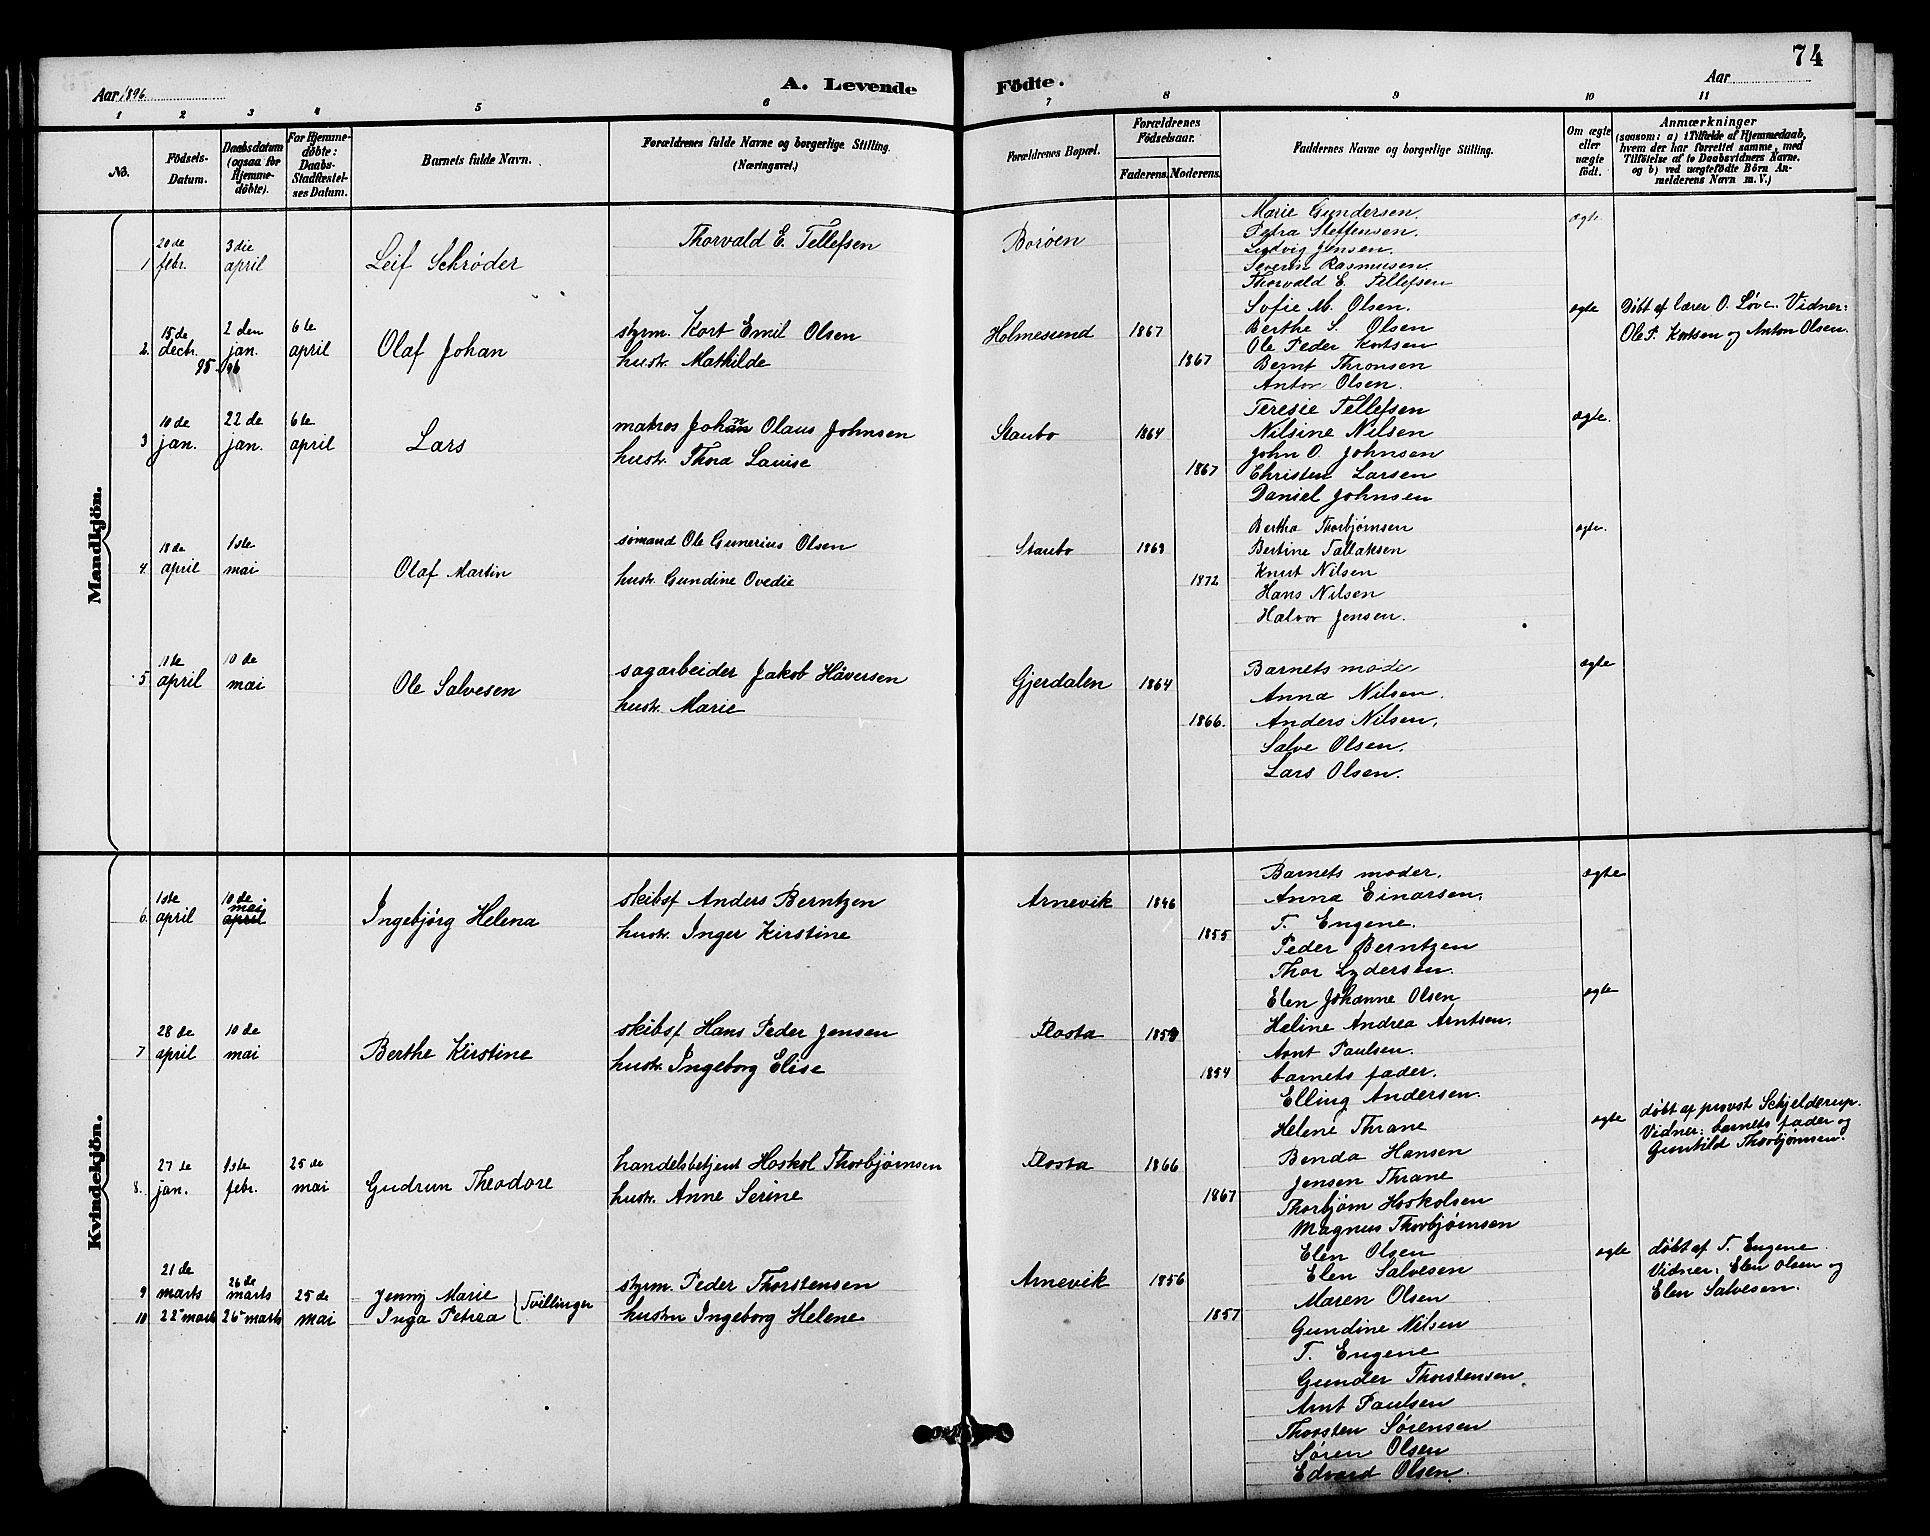 74
Aar 1896
A. Levende Födte.
Aar
1 2 3 4 5 6 7 8 9 10 11
No.
Födsels-Datum.
Daabsdatum (ogsaa for Hjemmedöbte).
For Hjemmedöbte: Daabs-Stadfæstelses Datum.
Barnets fulde Navn.
Forældrenes fulde Navne og borgerlige Stilling. (Næringsvei.)
Forældrenes Bopæl.
Forældrenes Födselsaar.
Faderens. Moderens.
Faddernes Navne og borgerlige Stilling.
Om ægte eller uægte födt.
Anmærkninger
(saasom: a) i Tilfælde af Hjemmedaab, hvem der har forrettet samme, med Tilföielse af to Daabsvidners Navne. og b) ved uægtefödte Börn Anmelderens Navn m. V.)
Mandkjön.
1 20de febr. 3die april
Leif Schrøder
Thorvald E. Tellefsen
Borøen
Marie Gundersen.
Petra Steffensen.
Ludvig Jensen.
Severin Rasmusen.
Thorvald E. Tellefsen
ægte
2. 15de decbr. 95. 2den jan. 96 6te april
Olaf Johan
styrm. Kort Emil Olsen
hustr. Mathilde
Holmesund
1867
1867
Sofie M. Olsen.
Berthe S. Olsen
Ole Peder Kortsen
Bernt Thronsen
Anton Olsen.
ægte
Døbt af lærer O. Løve. Vidner:
Ole P. Kortsen og Anton Olsen.
3 10de jan. 22de jan. 6te april
Lars
matros Johan Olaus Johnsen
hustr. Thora Lauise
Staubo
1864
1867
Teresie Tellefsen
Nilsine Nilsen
John O. Johnsen
Christen Larsen
Daniel Johnsen
ægte.
4. 18de april 1ste mai
Olaf Martin
sømand Ole Gunerius Olsen
hustr. Gundine Ovedie
Staubo
1869
1872
Bertha Thorbjørnsen
Bertine Tallaksen
Knut Nilsen
Hans Nilsen
Halvor Jensen.
ægte.
5 1ste april 10de mai
Ole Salvesen
sagarbeider Jakob Håversen
hustr. Marie
Gjerdalen
1864
1866.
Barnets mode
Anna Nilsen.
Anders Nilsen,
Salve Olsen.
Lars Olsen.
ægte
Kvindekjön.
6. 1ste april 10de mai april
Ingebjørg Helena
skibsf Anders Berntzen
hustr. Inger Kirstine
Arnevik
1846
1855
Barnets moder.
Anna Einarsen.
T. Eugene.
Peder Berntzen
Thor Lydersen.
ægte
7 28de april 10de mai
Berthe Kirstine
skibsf Hans Peder Jensen
hustr. Ingeborg Elise
Flosta
1854
Elen Johanne Olsen
Heline Andrea Arntsen.
Arnt Paulsen.
barnets fader.
Elling Andersen.
ægte
8. 27de jan. 1ste febr. 25de mai
Gudrun Theodore
handelsbetjent Hoskol Thorbjørnsen
hustr. Anne Serine
Flosta
1866
1867
Helene Thrane
Benda Hansen
Jensen Thrane
Thorbjørn Hoskolsen
Magnus Thorbjørnsen
ægte
døbt af provst Schjelderup.
Vidner: barnets fader og
Gunhild Thorbjørnsen.
9 21de marts 26de marts 25de
10 22 marts 26 marts mai
Jenny Marie
Inga Petrea Tvillinger
styrm. Peder Thorstensen
hustru Ingeborg Helene
Arnevik
1856
1857
Elen Olsen
Elen Salvesen
Maren Olsen
Gundine Nilsen
T. Eugene
Gunder Thorstensen.
Arnt Paulsen
Thorsten Sørensen
Søren Olsen
Edvard Olsen.
ægte
døbt af T. Eugene.
Vidner: Elen Olsen og
Elen Salvesen.